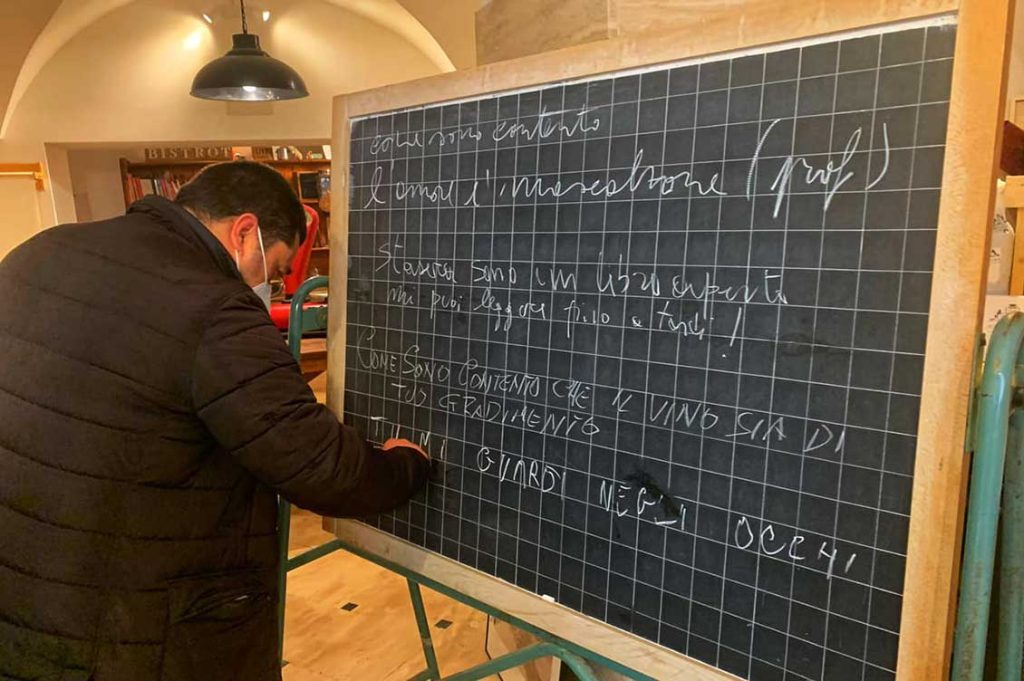 BISTROT
come sono contento
l'amore è l'immercatzione (prof)
Stasera sono un libro aperto
mi puoi leggere fino a tardi!
COME SONO CONTENTO CHE IL VINO SIA DI
TUO GRADIMENTO
TU MI GUARDI NEGLI OCCHI